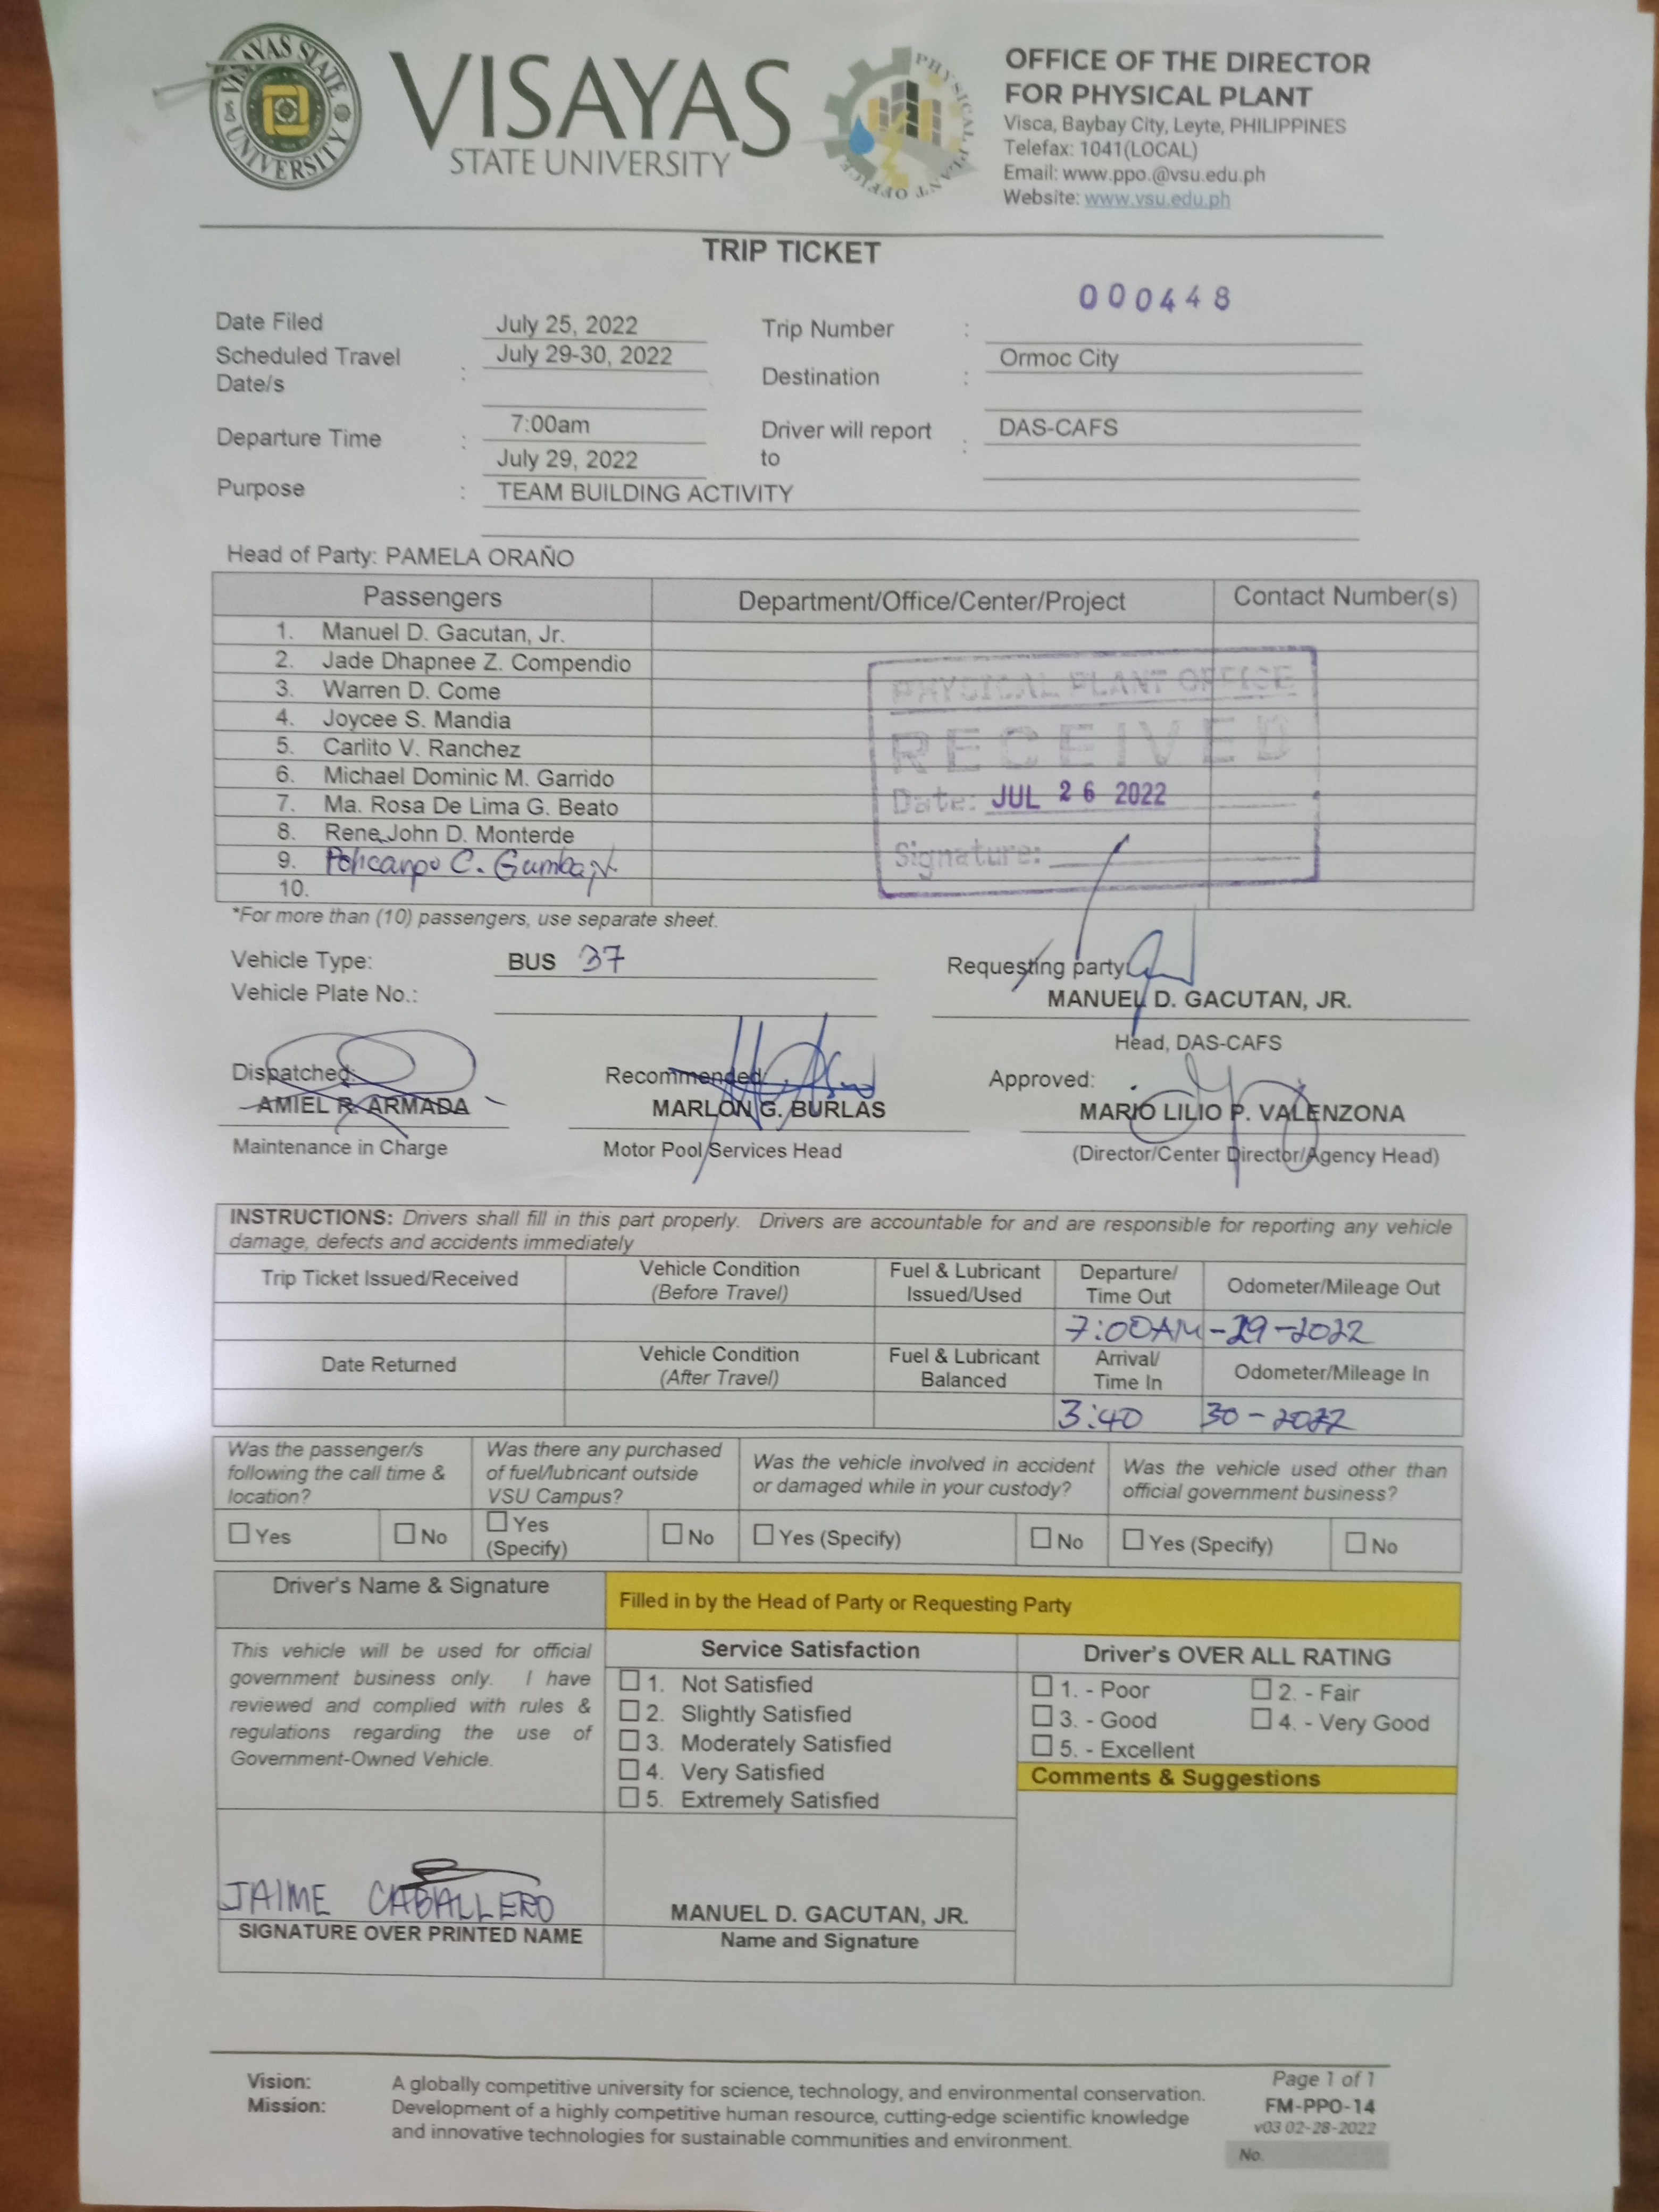 VISAYAS STATE UNIVERSITY
VISAYAS
STATE UNIVERSITY
PHYSICAL PLANT OFFICE
OFFICE OF THE DIRECTOR
FOR PHYSICAL PLANT
Visca, Baybay City, Leyte, PHILIPPINES
Telefax: 1041(LOCAL)
Email: www.ppo.@vsu.edu.ph
Website: www.vsu.edu.ph
TRIP TICKET
000448
Date Filed July 25, 2022 Trip Number :
Scheduled Travel Date/s : July 29-30, 2022 Destination : Ormoc City
Departure Time : 7:00am July 29, 2022 Driver will report to : DAS-CAFS
Purpose : TEAM BUILDING ACTIVITY
Head of Party: PAMELA ORAÑO
Passengers Department/Office/Center/Project Contact Number(s)
1. Manuel D. Gacutan, Jr.
2. Jade Dhapnee Z. Compendio
3. Warren D. Come
4. Joycee S. Mandia
5. Carlito V. Ranchez
6. Michael Dominic M. Garrido
7. Ma. Rosa De Lima G. Beato
8. Rene John D. Monterde
9. C.
10.
PHYSICAL PLANT OFFICE
RECEIVED
Date: JUL 26 2022
Signature:
*For more than (10) passengers, use separate sheet.
Vehicle Type: BUS 37 Requesting party
Vehicle Plate No.: MANUEL D. GACUTAN, JR.
Head, DAS-CAFS
Dispatched: Recommended Approved:
AMIEL R. ARMADA MARLON G. BURLAS MARIO LILIO P. VALENZONA
Maintenance in Charge Motor Pool Services Head (Director/Center Director/Agency Head)
INSTRUCTIONS: Drivers shall fill in this part properly. Drivers are accountable for and are responsible for reporting any vehicle
damage, defects and accidents immediately
Trip Ticket Issued/Received Vehicle Condition (Before Travel) Fuel & Lubricant Issued/Used Departure/ Time Out Odometer/Mileage Out
7:00AM -29-2022
Date Returned Vehicle Condition (After Travel) Fuel & Lubricant Balanced Arrival/ Time In Odometer/Mileage In
3:40 30-2022
Was the passenger/s following the call time & location? Was there any purchased of fuel/lubricant outside VSU Campus? Was the vehicle involved in accident or damaged while in your custody? Was the vehicle used other than official government business?
Yes No Yes (Specify) No Yes (Specify) No Yes (Specify) No
Driver's Name & Signature Filled in by the Head of Party or Requesting Party
This vehicle will be used for official
government business only. I have
reviewed and complied with rules &
regulations regarding the use of
Government-Owned Vehicle.
Service Satisfaction
1. Not Satisfied
2. Slightly Satisfied
3. Moderately Satisfied
4. Very Satisfied
5. Extremely Satisfied
Driver's OVER ALL RATING
1. - Poor 2. - Fair
3. - Good 4. - Very Good
5. - Excellent
Comments & Suggestions
JAIME CABALLERO
SIGNATURE OVER PRINTED NAME
MANUEL D. GACUTAN, JR.
Name and Signature
Vision: A globally competitive university for science, technology, and environmental conservation.
Mission: Development of a highly competitive human resource, cutting-edge scientific knowledge
and innovative technologies for sustainable communities and environment.
Page 1 of 1
FM-PPO-14
v03 02-28-2022
No.